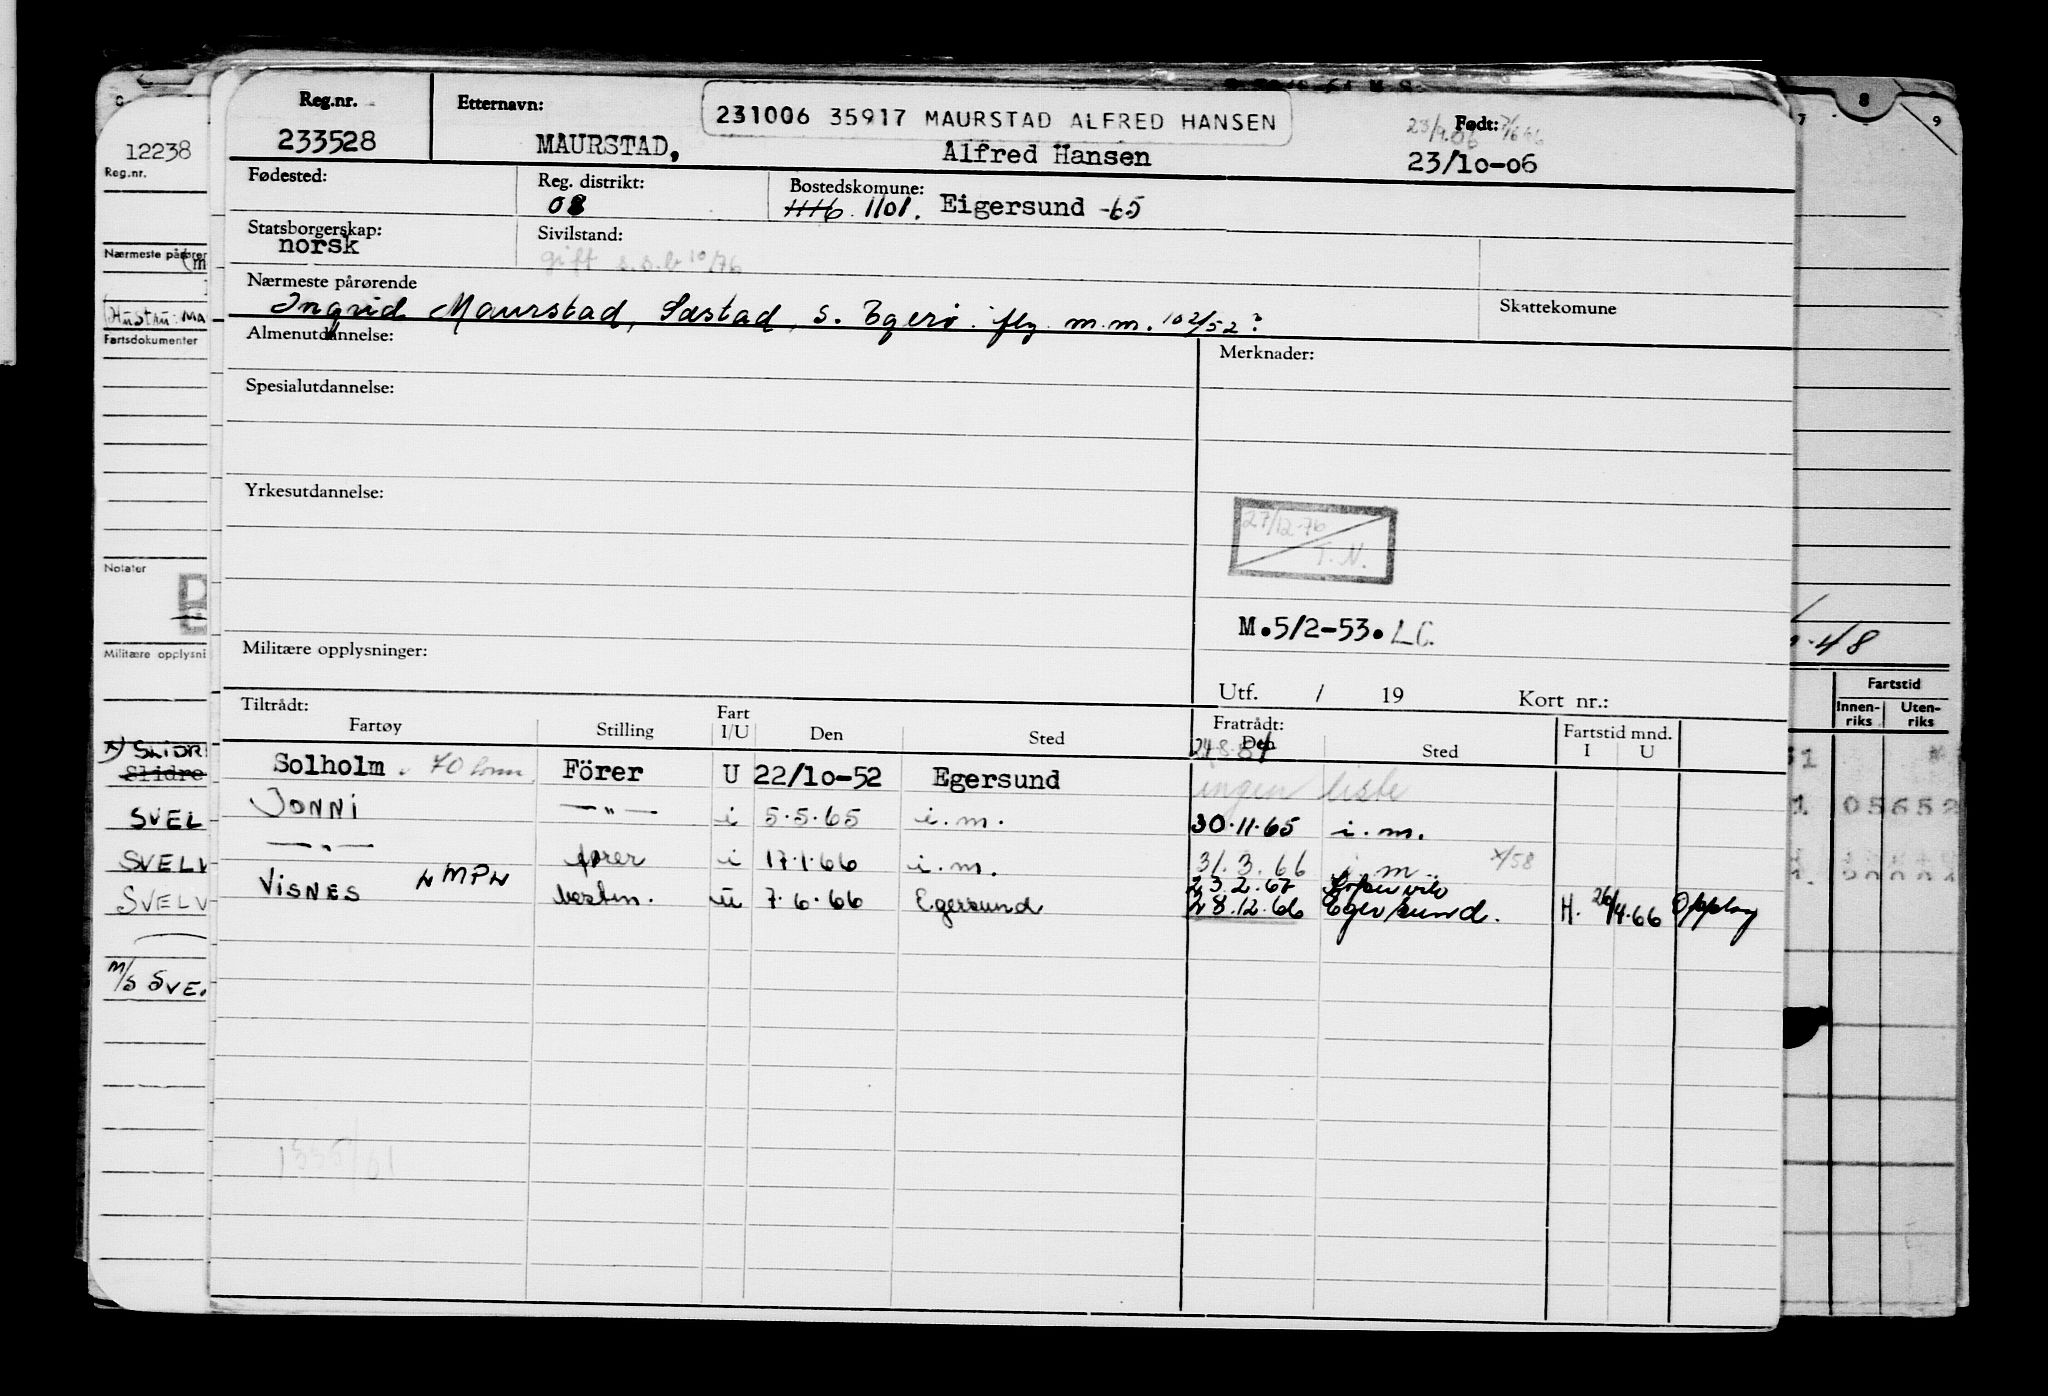 Reg.nr.
233528
Etternavn:
231006 35917 MAURSTAD ALFRED HANSEN
MAURSTAD, Alfred Hansen
Født:
23/10-06
Fødested:
Reg. distrikt:
08
Bostedskomune:
1101. Eigersund -65
Statsborgerskap:
norsk
Sivilstand:
gift s.s.b 10/76
Nærmeste pårørende
Ingrid Maurstad, Sæstad, s. Egerø. flg. m.m. 102/52
Skattekomune
Almenutdannelse:
Merknader:
Spesialutdannelse:
Yrkesutdannelse:
27/12-76
T.N.
M.5/2-53. LC.
Militære opplysninger:
Utf. / 19 Kort nr.:
Tiltrådt:
Fartøy Stilling Fart I/U Den Sted
Fratrådt:
Den Sted
Fartstid mnd.
I U
Solholm 70 tonn Förer U 22/10-52 Egersund ingen liste
JONNI —"— i 5.5.65 i.m. 30.11.65 i.m.
—"— fører i 17.1.66 i.m. 31.3.66 i.m. x/58
23.2.67
VISNES LMPL bestm. u 7.6.66 Egersund 28.12.66 Egersund. H. 26/4.66 Opplag
12238
Reg.nr.
Nærmeste pårører
Hustru: MA
Fartsdokumenter
Notater
Militære opplysni
x) SLIDR
Slidre
SVEL
SVELV
SVELV
M/S SVE
7 8 9
Fartstid
Innen-riks Uten-riks